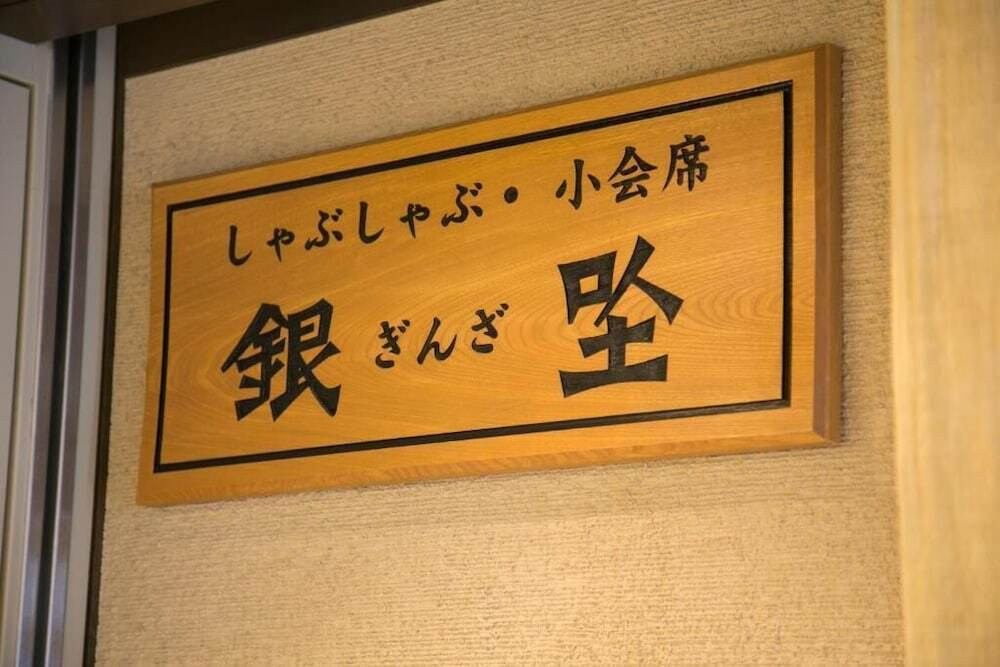 しゃぶしゃぶ・小会席
銀ぎんざ坐